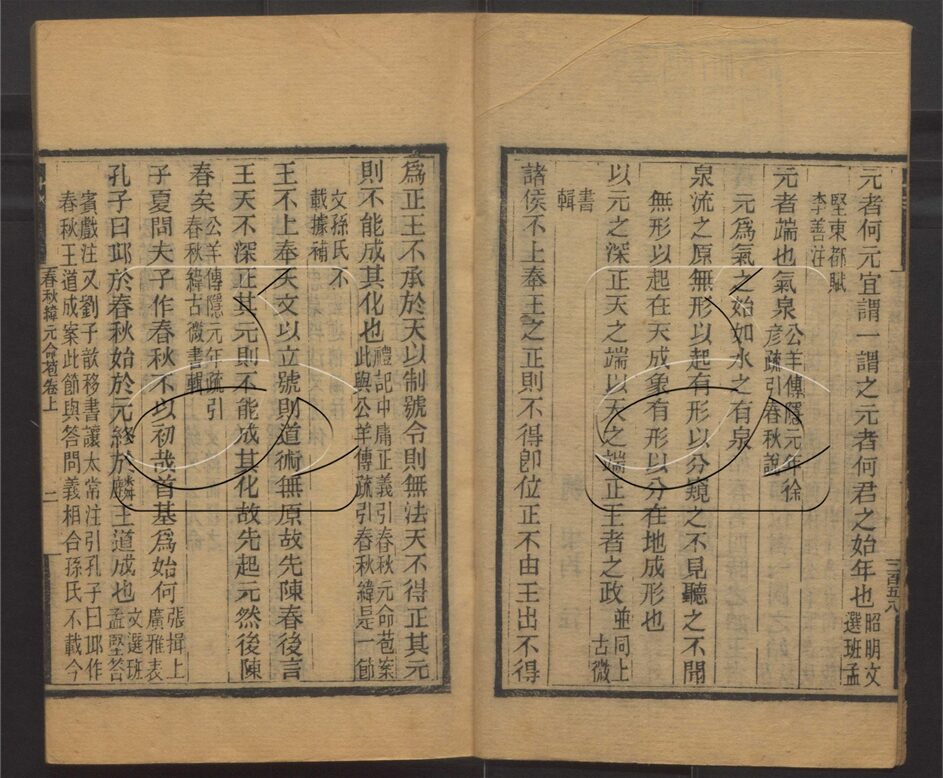 元者何元宜謂一謂之元者何君之始年也昭明文選班孟
堅東都賦李善注
元者端也氣泉公羊傳隱元年徐彥疏引春秋說
元為氣之始如水之有泉
泉流之原無形以起有形以分窺之不見聽之不聞
無形以起在天成象有形以分在地成形也
以元之深正天之端以天之端正王者之政並同上古微
書輯
諸侯不上奉王之正則不得卽位正不由王出不得
三百五八
為正王不承於天以制號令則無法天不得正其元
則不能成其化也禮記中庸正義引春秋元命苞案此與公羊傳疏引春秋緯是一節
文孫氏不載據補
王不上奉天文以立號則道術無原故先陳春後言
王天不深正其元則不能成其化故先起元然後陳
春矣公羊傳隱元年疏引春秋緯古微書輯
子夏問夫子作春秋不以初哉首基為始何張揖上廣雅表
孔子曰邱於春秋始於元終於麟王道成也文選班孟堅荅
賓戲注又劉子歆移書讓太常注引孔子曰邱作春秋王道成案此節與答問義相合孫氏不載今
春秋緯元命苞卷上
二